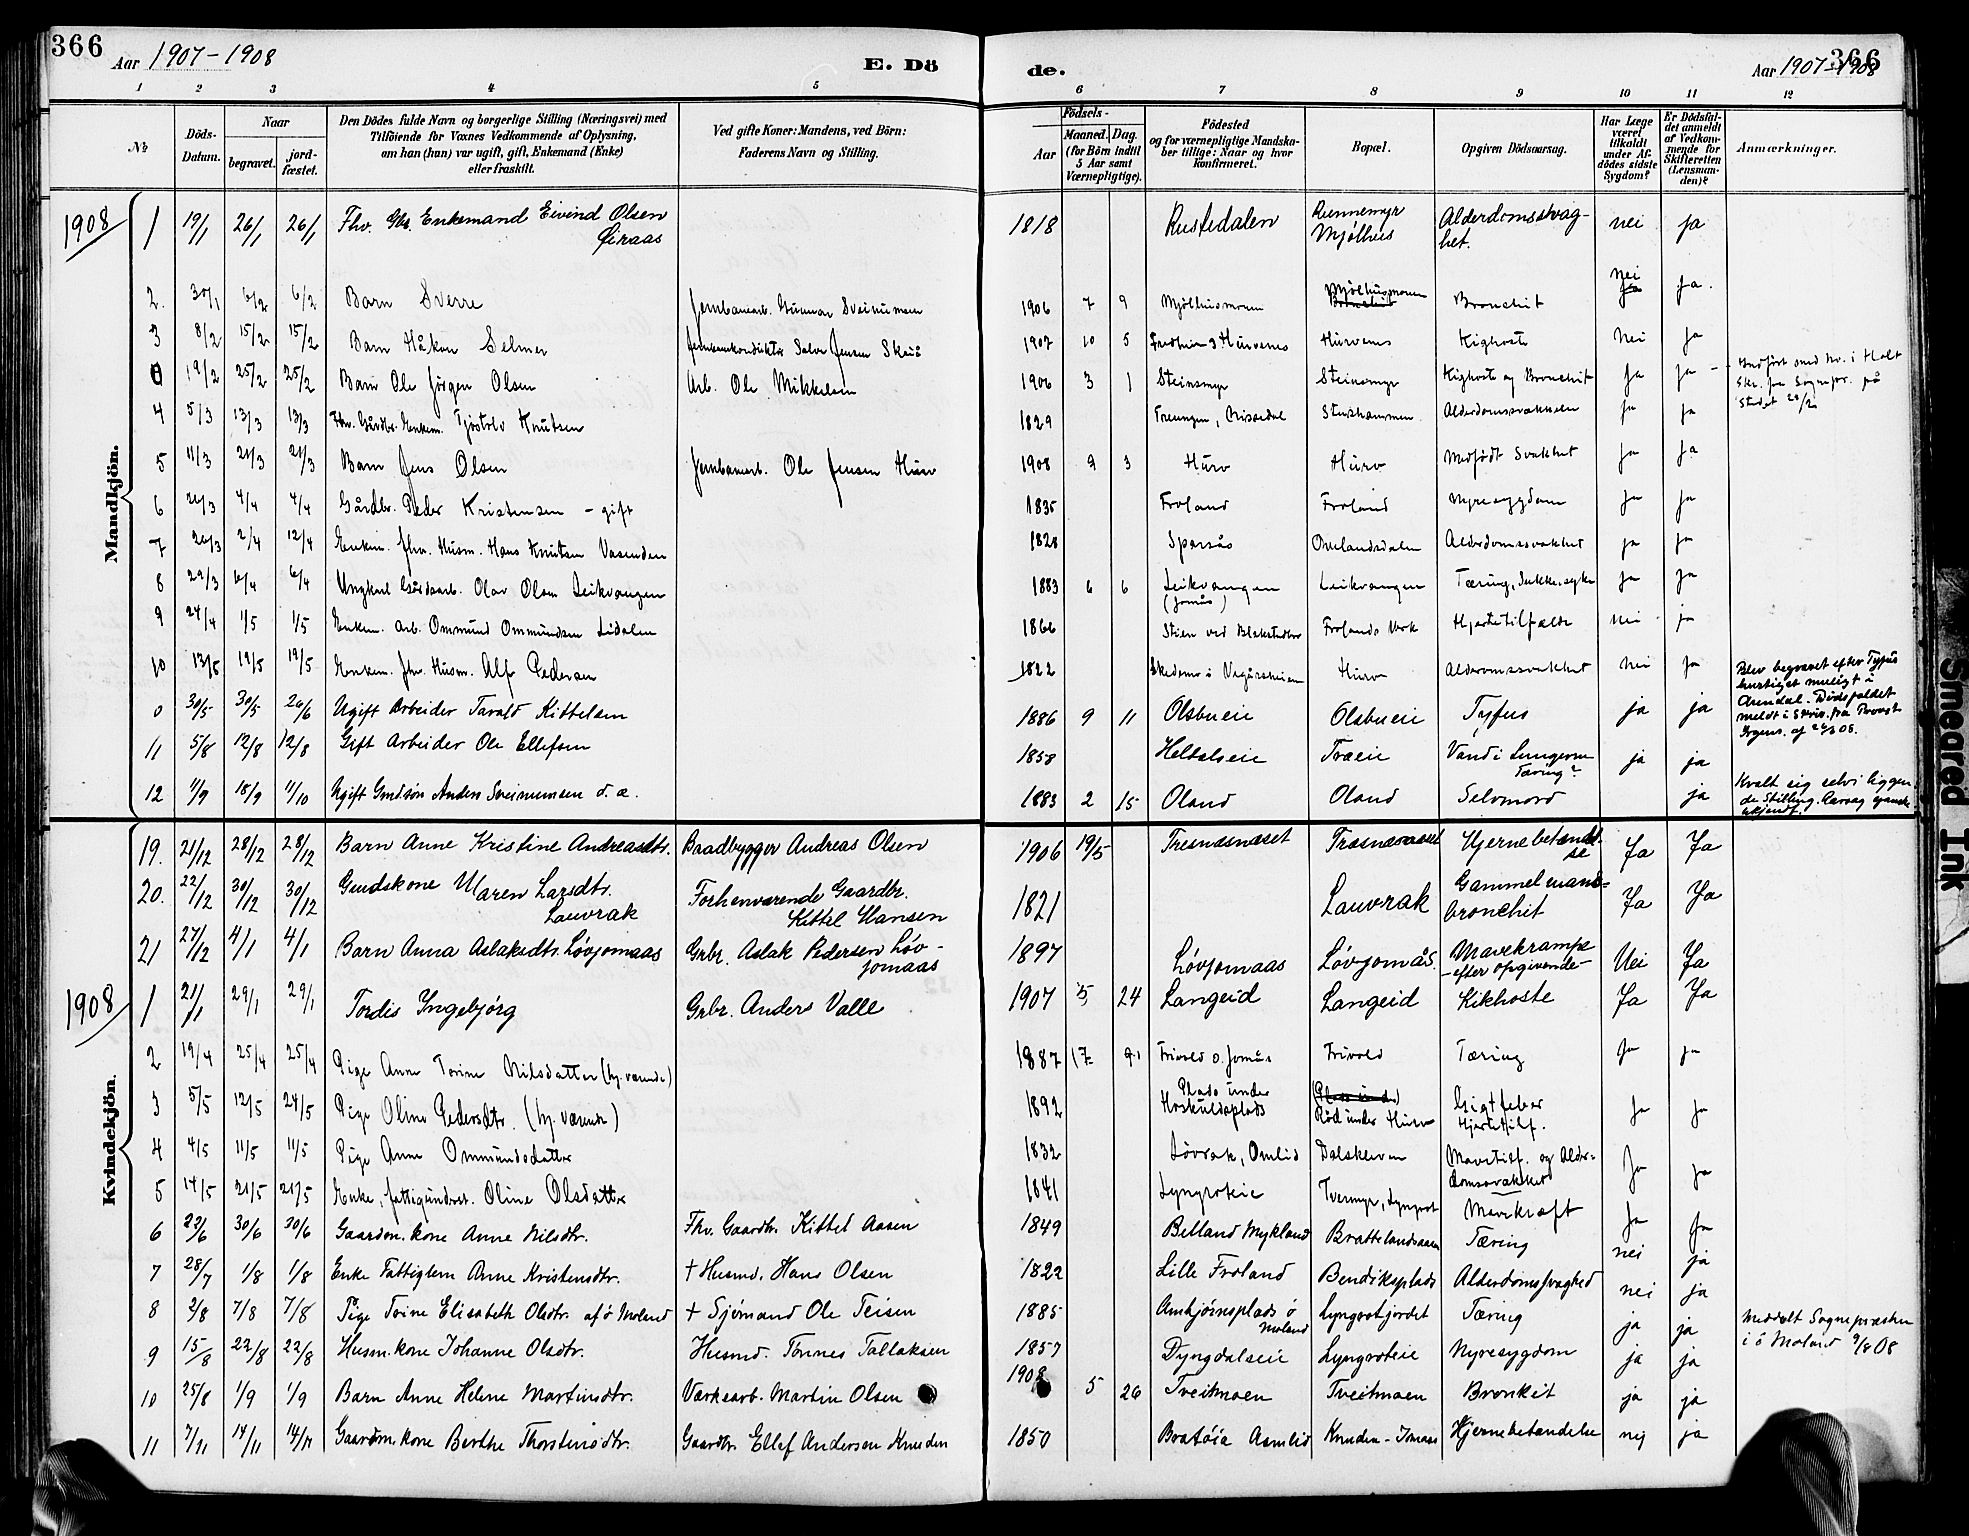 366
Aar 1907-1908
E. Dö
de.
Aar 1907-1908
366
1 2 3 4 5 6 7 8 9 10 11 12
№
Döds-Datum.
Naar
begravet.
jord-fæstet.
Den Dödes fulde Navn og borgerlige Stilling (Næringsvei) med
Tilföiende for Voxnes Vedkommende af Oplysning,
om han (hun) var ugift, gift, Enkemand (Enke)
eller fraskilt.
Ved gifte Koner: Mandens, ved Börn:
Faderens Navn og Stilling.
Födsels-
Aar
Maaned. Dag.
(for Börn indtil
5 Aar samt
Værnepligtige).
Födested
og for værnepligtige Mandska-
ber tillige: Naar og hvor
konfirmeret.
Bopæl.
Opgiven Dödsaarsag.
Har Læge
været
tilkaldt
under Af-
dödes sidste
Sygdom?
Er Dödsfal-
det anmeldt
af Vedkom-
mende for
Skifteretten
(Lensman-
den)?
Anmærkninger.
Mandkjön.
1908
1 19/1 26/1 26/1 Fhv. Gbr. Enkemand Eivind Olsen 1818 Rustedalen Rennemyr Alderdomssvag- nei ja
Øiraas Mjølhus het.
2. 30/1 6/2 6/2 Barn Sverre Jernbanearb. Gunnar Sveinumsen 1906 7 9 Mjölhusmoen Mjölhusmoen Bronchit nei ja.
3 8/2 15/2 15/2 Barn Håkon Selmer Salve Jensen 1907 10 5 Hurvenes Kighoste Nei ja
0 19/2 25/2 25/2 Barn Ole Jörgen Olsen Arb. Ole Mikkelsen 1906 3 1 Steinsmyr Steinsmyr Kighoste og Bronchit ja ja - Indfört med No. i Holt
Skr. fra Sognepr. på
Stedet 28/2
4 5/3 13/3 13/3 Fhv. Gårdbr. Enkem. Tjöstolv Knutsen 1829 Treungen, Nissedal Alderdomssvakhet ja ja
5 11/3 21/3 21/3 Barn Jens Olsen Jernbanearb. Ole Jensen Hurv 1908 9 3 Hurv Hurv Medfödt Svakhet ja ja
6 26/3 4/4 4/4 Gårdbr. Peder Kristensen - gift 1835 Froland Froland Nyresygdom ja ja
7 26/3 2/4 12/4 Enkem. fhv. Husm. Hans Knutsen Vasenden 1828 Sparsås Ovelandsdalen Alderdomssvakhet ja ja
8 29/3 6/4 6/4 Ungkarl Gårdsarb. Olav Olsen Leikvangen 1883 6 6 Leikvangen Leikvangen Tæring, Sukkersyke ja ja
(Jomås)
9 24/4 1/5 1/5 Enkem. Arb. Ommund Ommundsen Lidalen 1866 Stien ved Frolands Verk Hjertetilfælde nei ja
10 13/5 19/5 19/5 Enkem. fhv. Husm. Alf Pedersen 1822 i Vegårsheien Hurv Alderdomssvakhet nei ja
0 30/5 30/5 26/6 Ugift Arbeider Tarald Kittelsen 1886 9 11 Olsbueie Olsbueie Tyfus ja ja Blev begravet efter Tyfus
hurtigst muligt i
Arendal. Dödsfaldet
meldt i Skriv. fra Provst
11 5/8 12/8 12/8 Gift Arbeider Ole Ellefsen 1858 Heltalseie Træeie Vand i Lungerne ja ja
Tæring?
12 11/9 18/9 11/10 Ugift Grdsön Anders Sveinumsen d.æ. 1883 2 15 Oland Oland Selvmord ja Kvalt sig selv i liggen
de Stilling. Aarsag
ukjendt.
Kvindekjön.
19. 21/12 28/12 28/12 Barn Anne Kristine Andreasdtr. Baadbygger Andreas Olsen 1906 19/5 Tresnæsnæset Træsnæsnæset Hjernebetændel- Ja Ja
se
20. 22/12 30/12 30/12 Gmdskone Maren Larsdtr. Forhenværende Gaardbr. 1821 Lauvrak Gammelmands- Ja Ja
Lauvrak Kittel Hansen bronchit
21 27/12 4/1 4/1 Barn Anna Aslaksdtr. Løvjomaas Grbr. Aslak Pedersen Løv- 1897 Løvjomaas Løvjomås. Mavekrampe Nei Ja
jomaas -efter opgivende-
1908
1 21/1 29/1 29/1 Tordis Ingebjörg Grbr. Anders Valle 1907 5 24 Langeid Langeid Kikhoste Ja Ja
2 19/4 25/4 25/4 Pige Anne Torine Nilsdatter (hj. værende) 1887 Frivold o. Jomås Frivold Tæring ja ja
3 5/5 12/5 24/5 Pige Oline Pedersdtr. (hj. værende) 1892 Plads under Gigtfeber ja ja
Röd under Hurv Hjertetilf.
4 4/5 11/5 11/5 Pige Anne Ommundsdatter 1832 Lövrak, Omlid Dalskleven Mavetilf. og Alder- ja ja
domssvakhet
5 14/5 21/5 21/5 Enke, fattigunderst. Oline Olsdatter 1841 Lyngroteie Tveitmyr, Lyngrot Mavekræft ja ja
6 23/6 30/6 30/6 Gaardm.kone Anne Nilsdtr. Fhv. Gaardbr. Kittel Aasen 1849 Belland Mykland Brattelandsaasen Tæring nei ja
7 28/7 1/8 1/8 Enke Fattiglem Anne Kristensdtr. † Husmd. Hans Olsen 1822 Lille Froland Bendiksplads Alderdomssvaghed nei ja
8 2/8 7/8 7/8 Pige Torine Elisabeth Olsdtr. af ö Moland † Sjömand Ole Teisen 1885 ö Lyngrotjordet Tæring ja ja Meddelt Sognepresten
Moland i ö Moland 9/8 08
9 15/8 22/8 22/8 Husm.kone Johanne Olsdtr. Husmd. Tönnes Tallaksen 1857 Dyngdalseie Lyngroteie Nyresygdom ja ja
10 25/8 1/9 1/9 Barn Anne Helene Martinsdtr. Værksarb. Martin Olsen 1908 5 26 Tveitmoen Tveitmoen Bronkit ja ja
11 7/11 14/11 14/11 Gaardm.kone Berthe Thorstensdtr. Gaardbr. Ellef Andersen Knuden 1850 Aamlid Knuden - Jomaas Hjernebetændelse nej ja
Smeared Ink